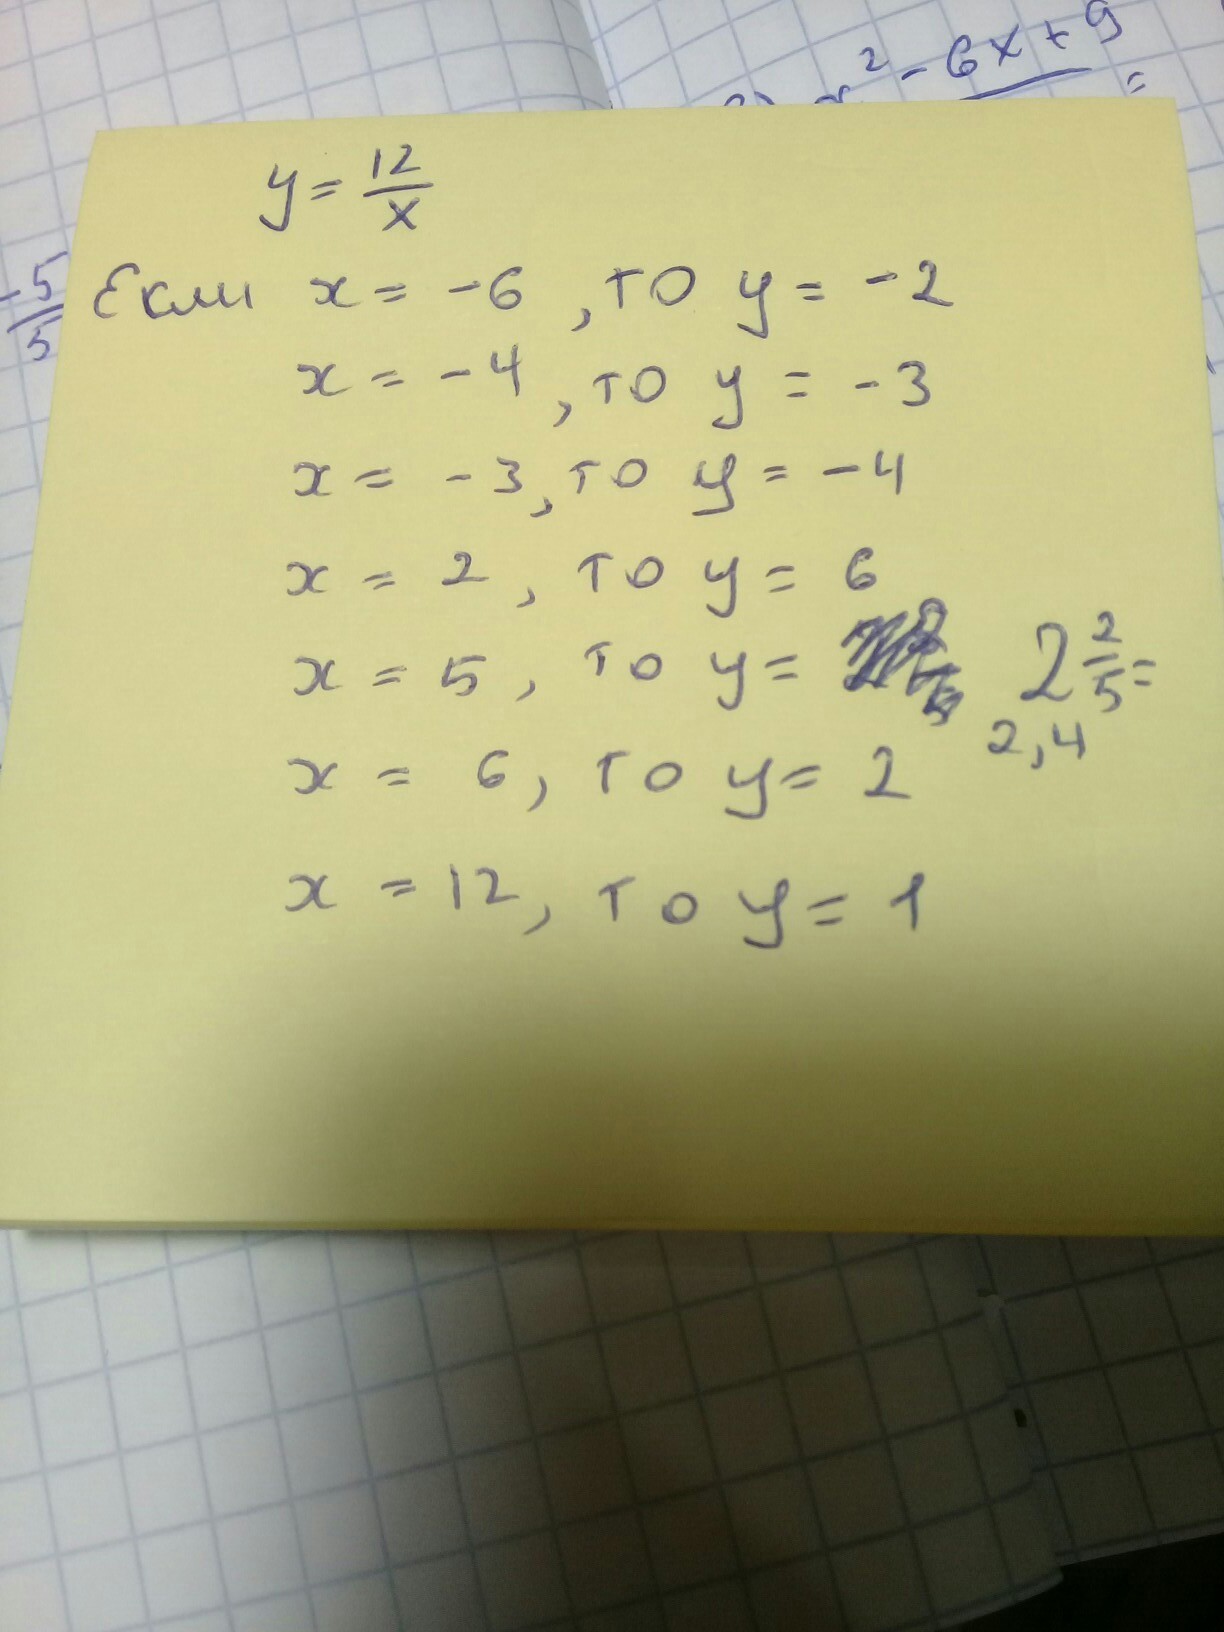 x² - 6x + 9 =
y = 12/x
-5/5
Екли x = -6, то y = -2
x = -4, то y = -3
x = -3, то y = -4
x = 2, то y = 6
x = 5, то y = 2 2/5 =
2,4
x = 6, то y = 2
x = 12, то y = 1